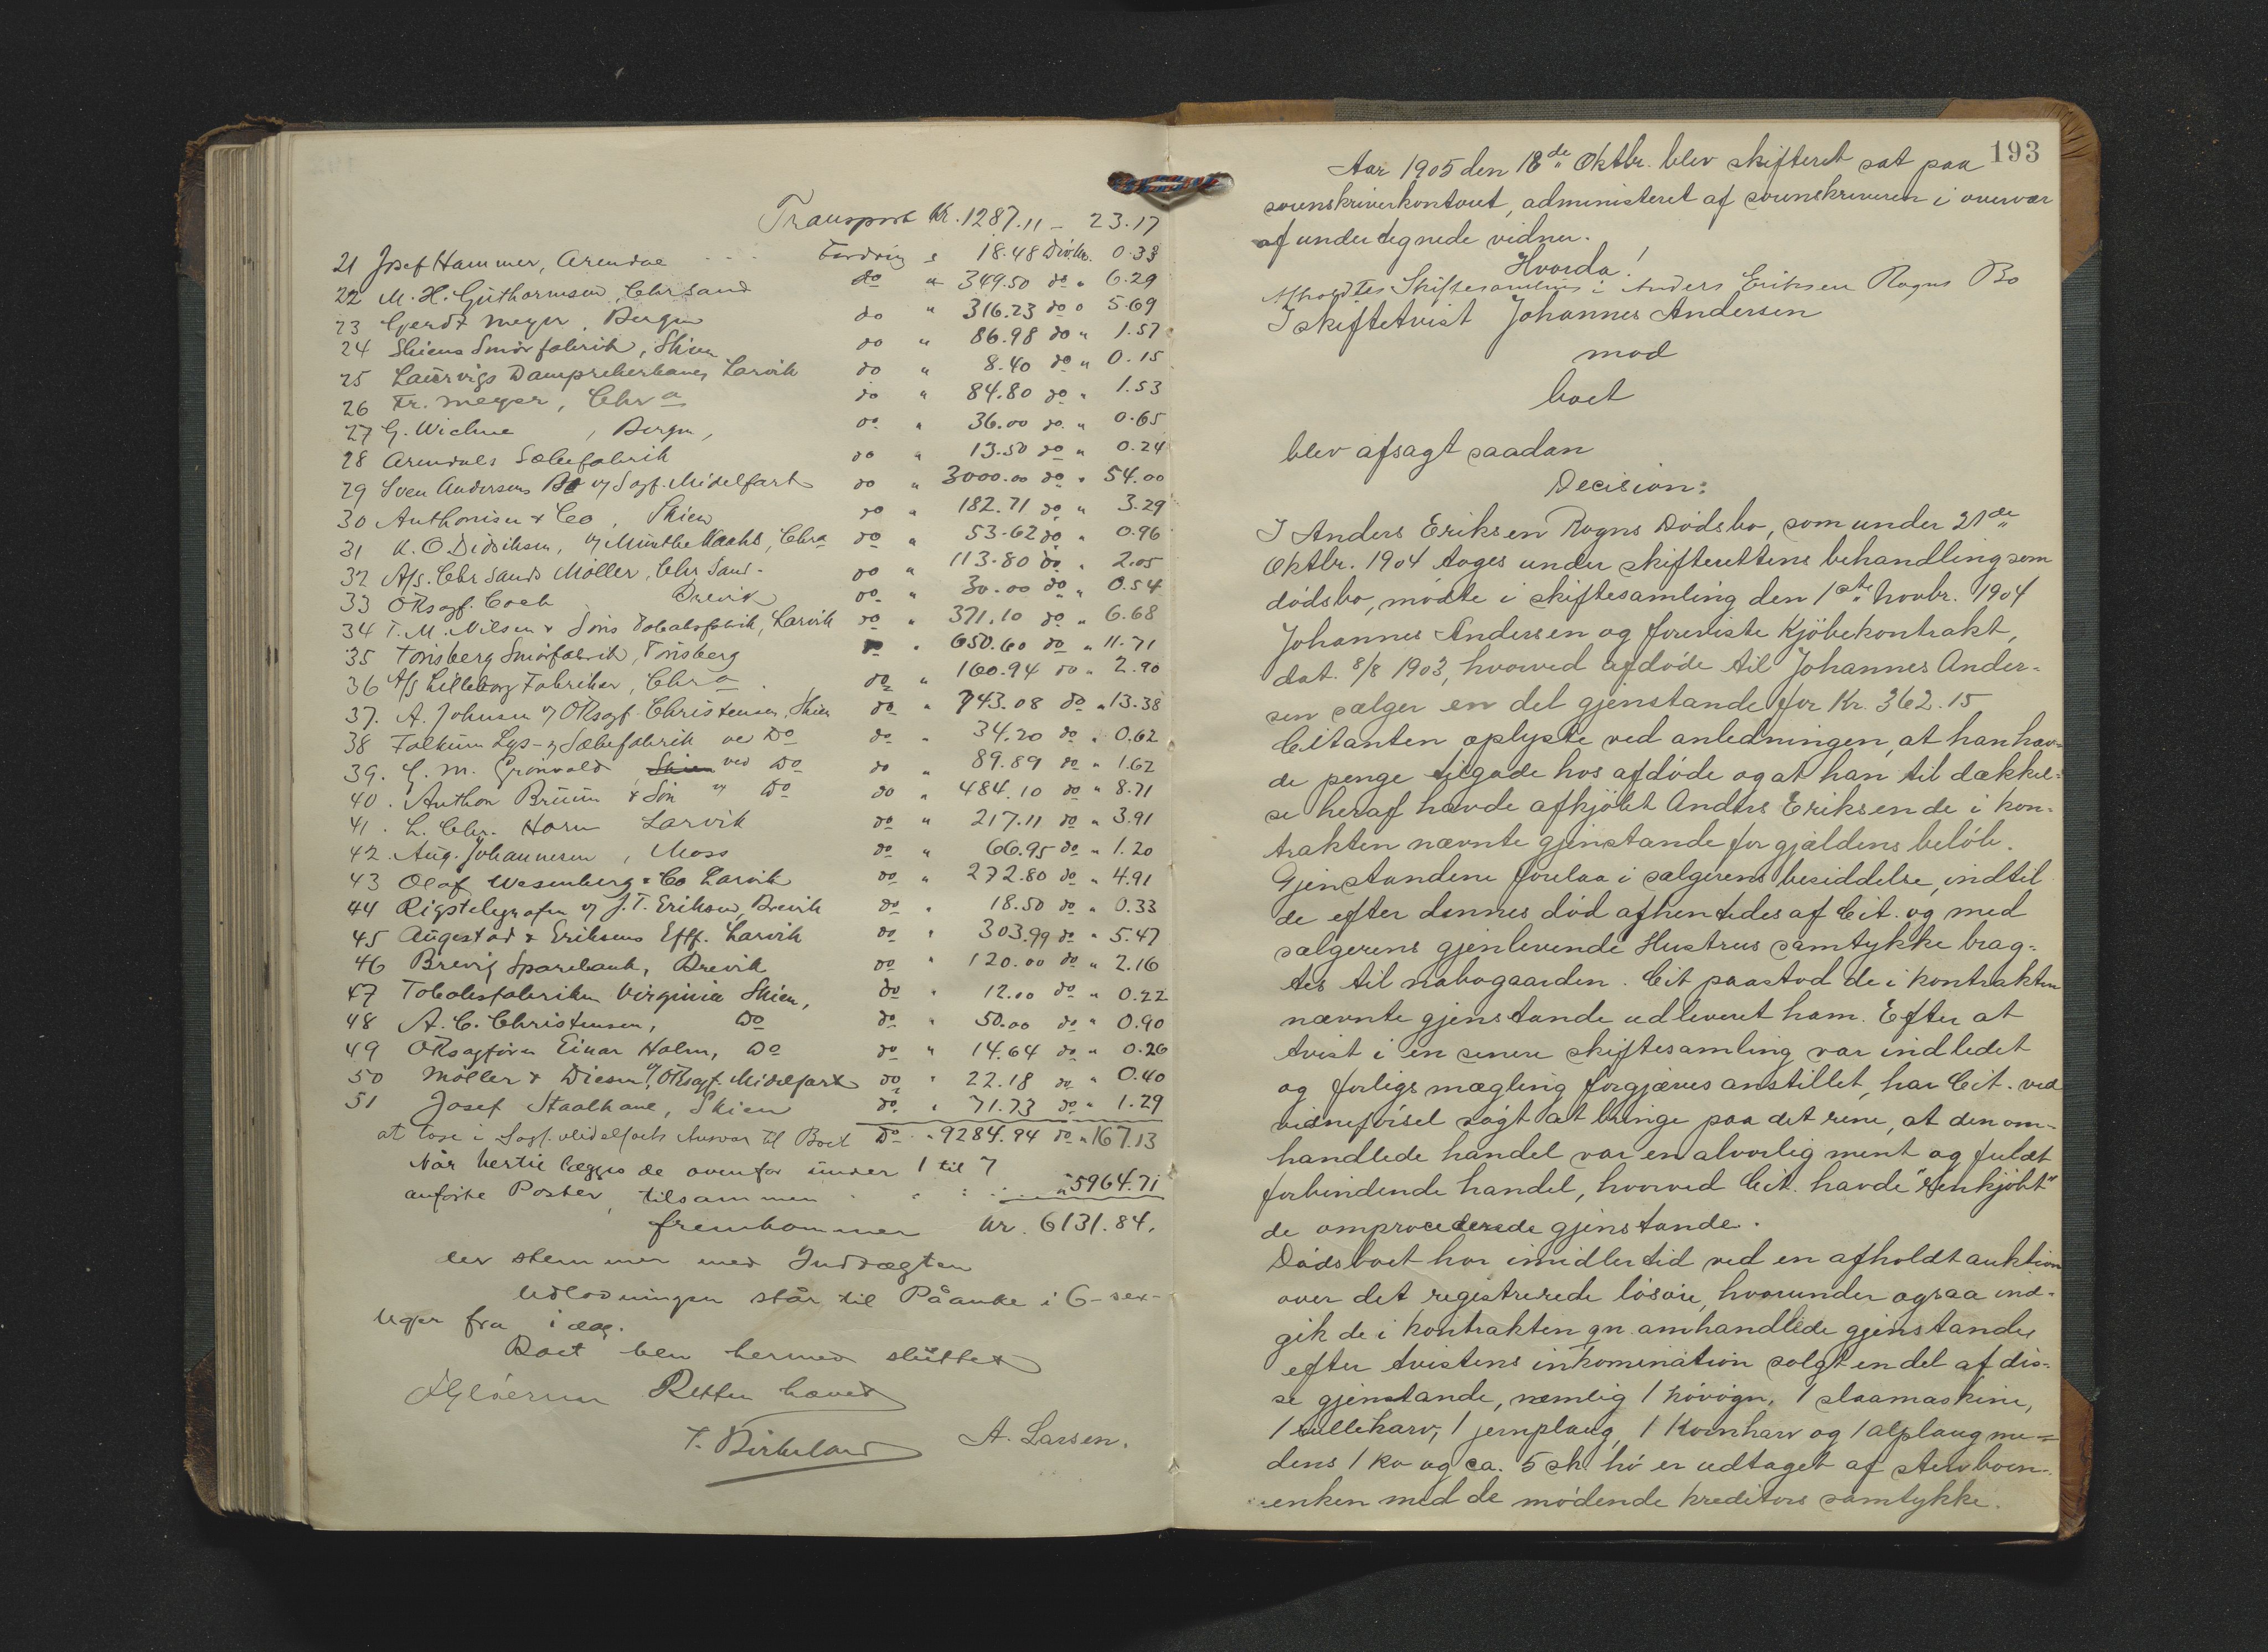 Transport Kr. 1287.11 – 23.17
21 Josef Hammer, Arendal . . . Fordring " 18.48 Divke. 0.33
22 M. H. Guthormsen, Chrsand do " 349.50 do " 6.29
23 Gerdt Meyer, Bergen do " 316.23 do " 5.69
24 Skiens Smörfabrik, Skien do " 86.98 do " 1.57
25 Laurvigs Dampsekerhaner Larvik do " 8.40 do " 0.15
26 Fr. Meyer, Chra do " 84.80 do " 1.53
27 G. Wichne, Bergen, do " 36.00 do " 0.65
28 Arendals Sæbefabrik do " 13.50 do " 0.24
29 Sven Andersens Bo v/ Sagf. Midelfart do " 3000.00 do " 54.00
30 Anthonisen & Co, Skien do " 182.71 do " 3.29
31 K. O. Didriksen, v/ Münthe Kaahs, Chra do " 53.62 do " 0.96
32 A/s. Chr Sands Möller, Chr Sand - do " 113.80 do " 2.05
33 ORsagf. Coch Brevik do " 30.00 do " 0.54
34 T. M. Nilsen & Söns Tobaksfabrik, Larvik do " 371.10 do " 6.68
35 Tönsberg Smörfabrik, Tönsberg do " 650.60 do " 11.71
36 A/s Lilleborg Fabriker, Chra . do " 160.94 do " 2.90
37. A. Johnsen v/ ORsagf. Christensen, Skien do " 743.08 do " 13.38
38 Falkum Lys- & Sæbefabrik ve Do do " 34.20 do " 0.62
39. G. M. Grönvold, Skien ved Do do " 89.89 do " 1.62
40. Anthon Brüün & Sön v/ Do do " 484.10 do " 8.71
41. L. Chr. Horn Larvik do " 217.11 do " 3.91
42. Aug. Johannesen, Moss do " 66.95 do " 1.20
43 Olaf Wesenberg & Co Larvik do " 272.80 do " 4.91
44 Rigstelegrafen v/ J. T. Eriksen, Brevik do " 18.50 do " 0.33
45 Augestad & Eriksens Eftf. Larvik do " 303.99 do " 5.47
46 Brevig Sparebank, Brevik do " 120.00 do " 2.16
47 Tobaksfabriken Virginia Skien, do " 12.00 do " 0.22
48 A. C. Christensen, Do do " 50.00 do " 0.90
49 ORsagförer Einar Holm, Do do " 14.64 do " 0.26
50 Möller & Diesen v/ ORsagf. Midelfart do " 22.18 do " 0.40
51 Josef Staalhane, Skien do " 71.73 do " 1.29
at løse i Sagf. Midelfarts Ansvar til Boet Do " 9284.94 do " 167.13
Når hertil lægges de ovenfor under 1 til 7
anförte Poster, tilsammen . . . . " 5964.71
fremkommer Kr. 6131.84.
der stemmer med Indtægten
Udlodningen står til Påanke i 6 - sex -
Uger fra idag.
Boet blev hermed sluttet
Retten hævet
T. Birkeland A. Larsen.
193
Aar 1905 den 18de Oktbr. blev skifteret sat paa
sorenskriverkontoret, administeret af sorenskriveren i overvær
af undertegnede vidner.
Hvorda!
Afholdtes Skiftesamling i Anders Eriksen Rogns Bo
I skiftetvist Johannes Andersen
mod
boet
blev afsagt saadan
Decision:
I Anders Eriksen Rogns Dödsbo, som under 21de
Oktbr. 1904 toges under skifterettens behandling som
dödsbo, mödte i skiftesamling den 1ste Novbr. 1904
Johannes Andersen og foreviste Kjöbekontrakt,
dat. 8/8 1903, hvorved afdöde til Johannes Ander-
sen sælger en del gjenstande for Kr. 362.15
Citanten oplyste ved anledningen, at han hav-
de penge tilgode hos afdöde og at han til dækkel-
se heraf havde afkjöbt Anders Eriksen de i kon-
trakten nævnte gjenstande for gjældens belöb.
Gjenstandene forelaa i sælgerens besiddelse, indtil
de efter dennes död afhentedes af Cit. og med
sælgerens gjenlevende Hustrus samtykke brag-
tes til nabogaarden. Cit paastod de i kontrakten
nævnte gjenstande udleveret ham. Efter at
tvist i en senere skiftesamling var indledet
og forligsmægling forgjæves anstillet, har Cit. ved
vidneförsel sögt at bringe paa det rene, at den om-
handlede handel var en alvorlig ment og fuldt
forbindende handel, hvorved Cit. havde "renkjöbt"
de omprocederede gjenstande.
Dödsboet har imidlertid ved en afholdt auktion
over det registrerede lösöre, hvorunder ogsaa ind-
gik de i kontrakten gn. omhandlede gjenstande,
efter tvistens inkomination solgt en del af dis-
se gjenstande, nemlig 1 hövogn, 1 slaamaskine,
1 rulleharv, 1 jernplaug, 1 Kornharv og 1 alplaug me-
dens 1 ko og ca. 5 sk. hö er udtaget af stervboen-
enken med de mödende kreditors samtykke.